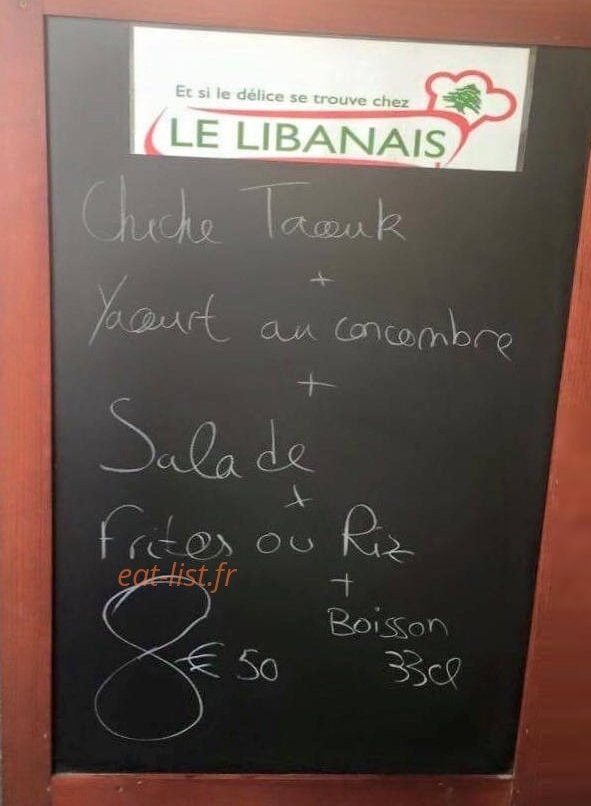 Et si le délice se trouve chez
LE LIBANAIS
Chiche Taouk
+
Yaourt au concombre
+
Salade
+
Frites ou Riz
eat-list.fr
+
Boisson
8€50
33cl